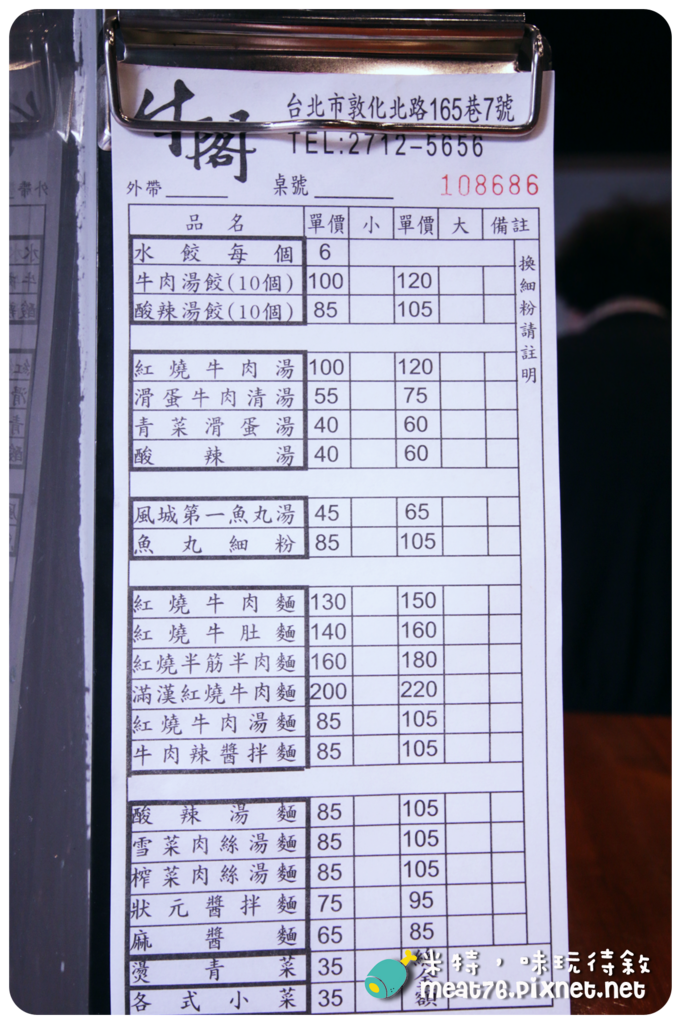 牛閣
台北市敦化北路165巷7號
TEL:2712-5656
外帶 桌號 108686
品名 單價 小 單價 大 備註
水餃每個 6
換細粉請註明
牛肉湯餃(10個) 100 120
酸辣湯餃(10個) 85 105
紅燒牛肉湯 100 120
滑蛋牛肉清湯 55 75
青菜滑蛋湯 40 60
酸辣湯 40 60
風城第一魚丸湯 45 65
魚丸細粉 85 105
紅燒牛肉麵 130 150
紅燒牛肚麵 140 160
紅燒半筋半肉麵 160 180
滿漢紅燒牛肉麵 200 220
紅燒牛肉湯麵 85 105
牛肉辣醬拌麵 85 105
酸辣湯麵 85 105
雪菜肉絲湯麵 85 105
榨菜肉絲湯麵 85 105
狀元醬拌麵 75 95
麻醬麵 65 85
燙青菜 35
各式小菜 35 額
米特，味玩待敘
meat76.pixnet.net